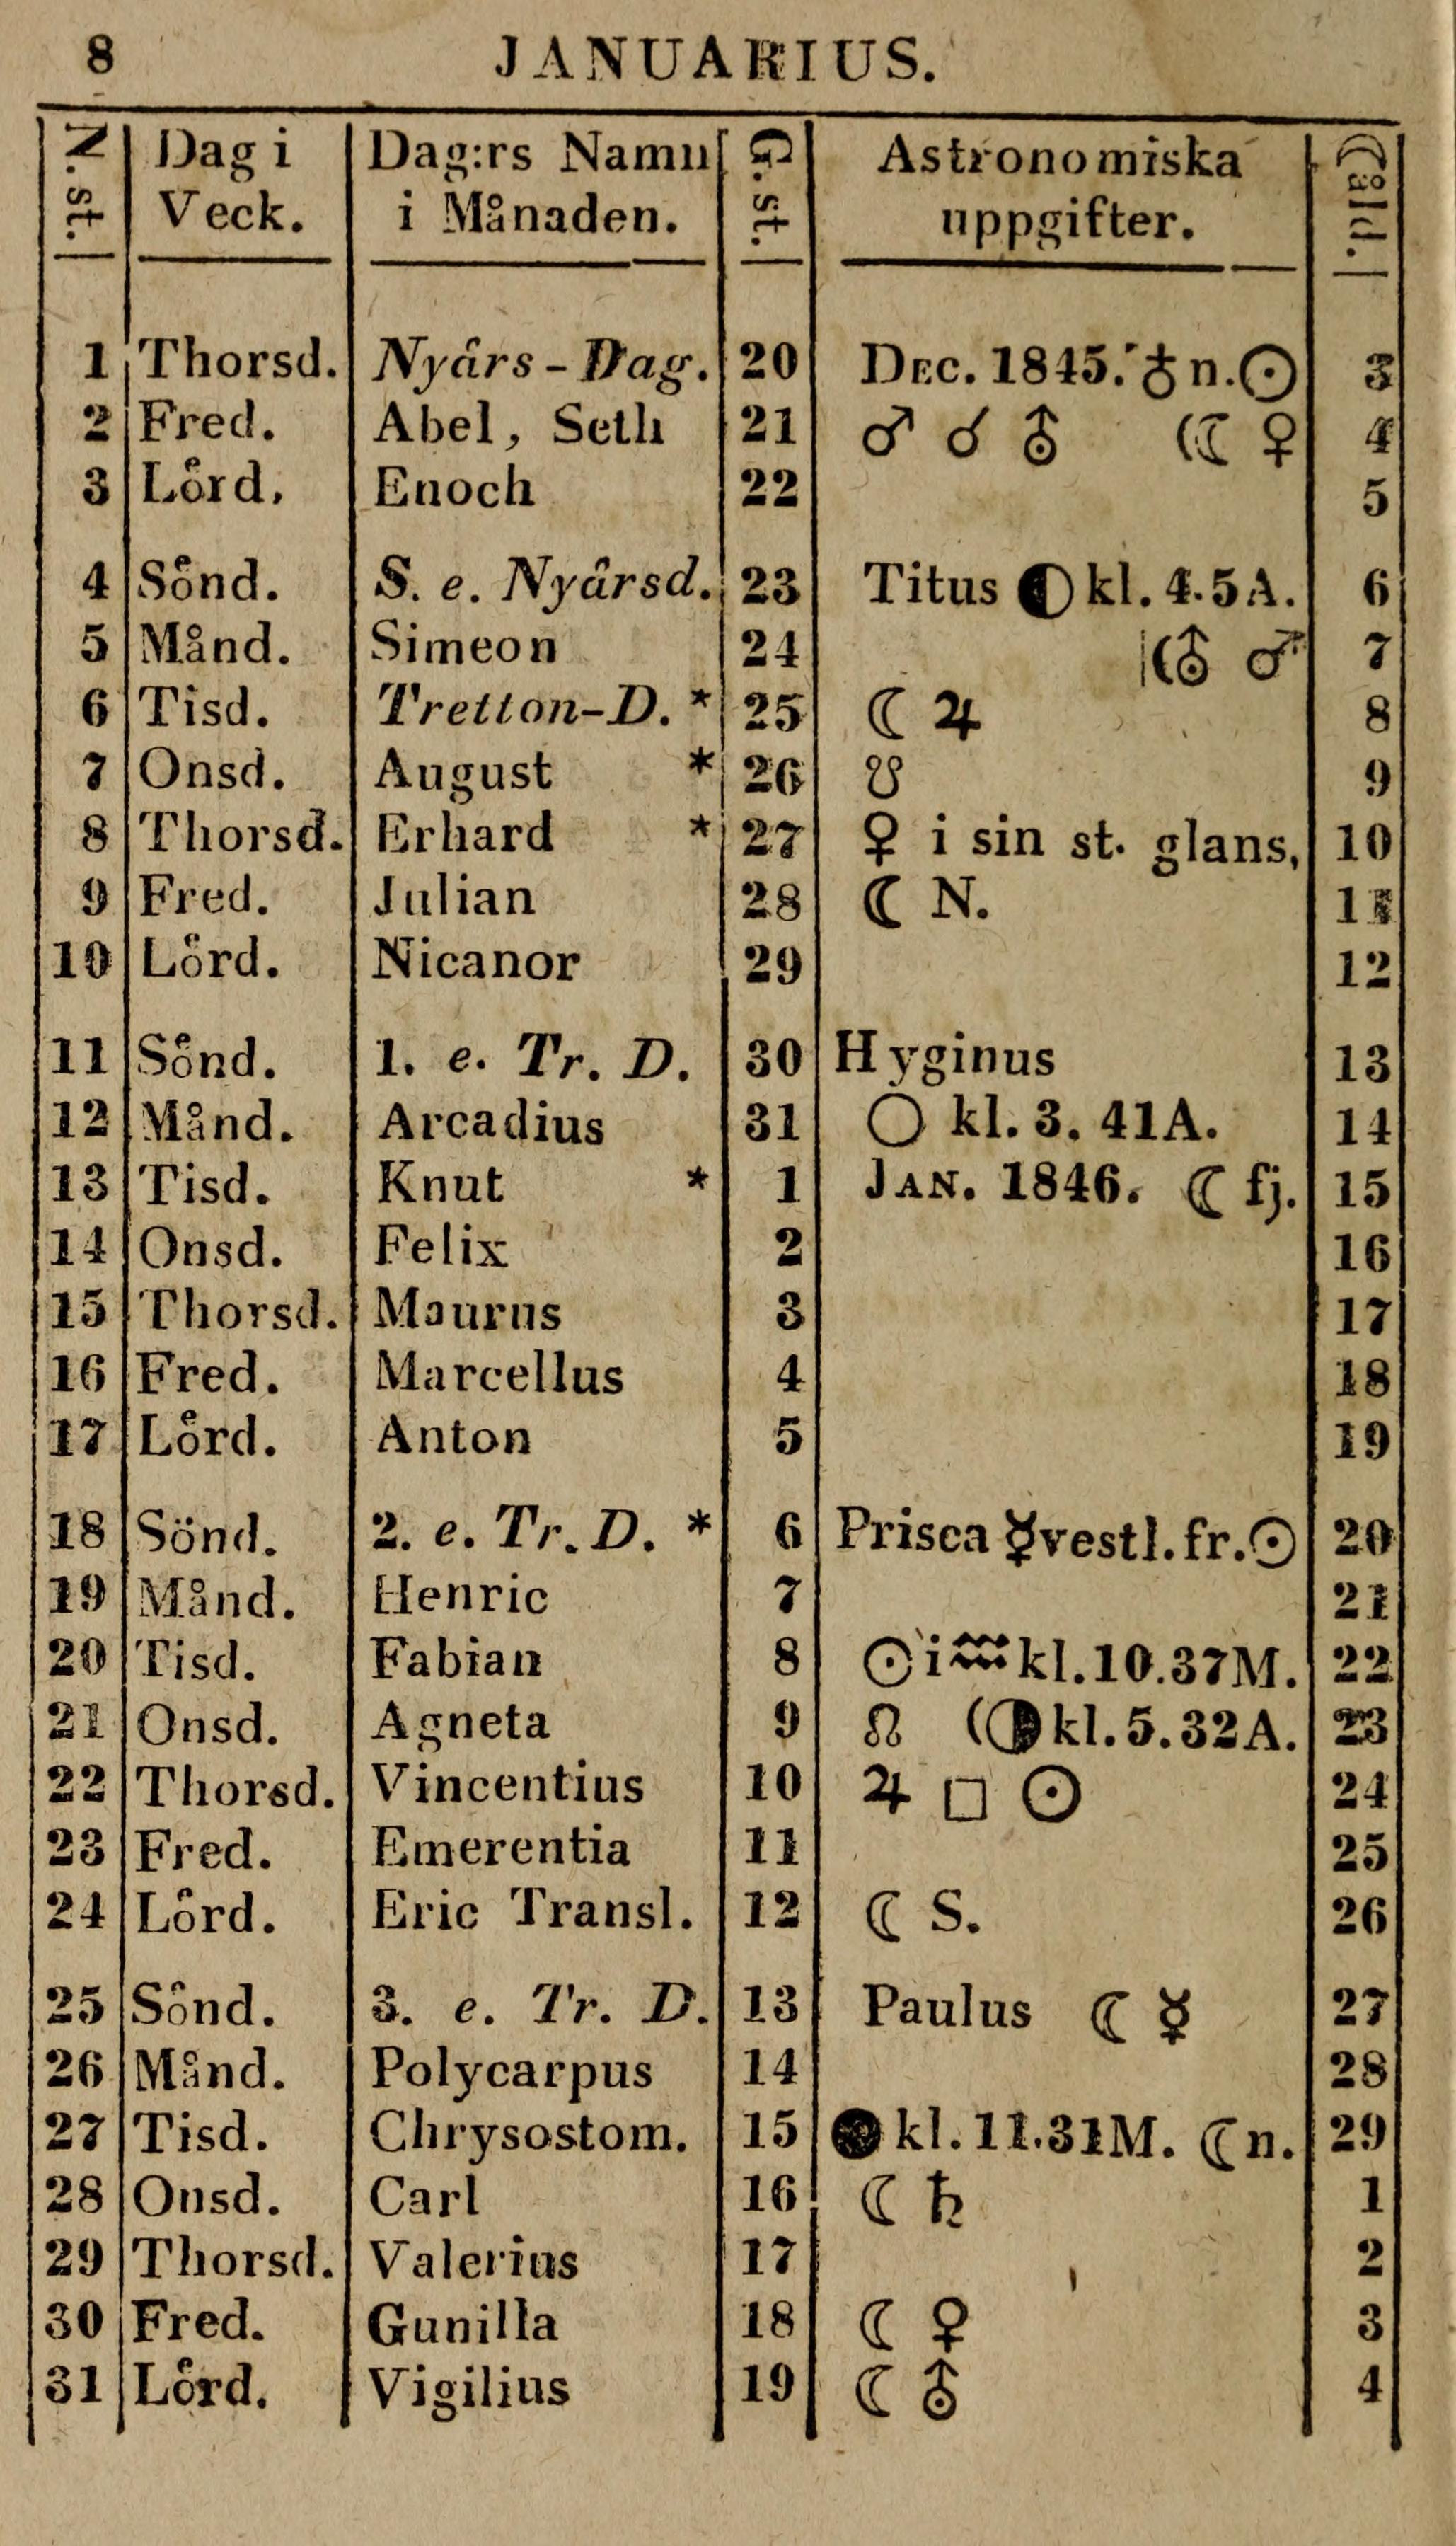 8 JANUARIUS.
N. st. | Dag i Veck. | Dag:rs Namn i Månaden. | G. st. | Astronomiska uppgifter. | ☾åld.
1 Thorsd. Nyårs-Dag. 20 Dec. 1845. ♁ n. ☉ 3
2 Fred. Abel, Seth 21 ♂ ☌ ⛢ (☾ ♀ 4
3 Lörd. Enoch 22 5
4 Sönd. S. e. Nyårsd. 23 Titus ◐ kl. 4. 5 A. 6
5 Månd. Simeon 24 (⛢ ♂ 7
6 Tisd. Tretton-D. * 25 ☾ ♃ 8
7 Onsd. August * 26 ☋ 9
8 Thorsd. Erhard * 27 ♀ i sin st. glans, 10
9 Fred. Julian 28 ☾ N. 11
10 Lörd. Nicanor 29 12
11 Sönd. 1. e. Tr. D. 30 Hyginus 13
12 Månd. Arcadius 31 ○ kl. 3. 41 A. 14
13 Tisd. Knut * 1 Jan. 1846. ☾ fj. 15
14 Onsd. Felix 2 16
15 Thorsd. Maurus 3 17
16 Fred. Marcellus 4 18
17 Lörd. Anton 5 19
18 Sönd. 2. e. Tr. D. * 6 Prisca ☿ vestl. fr. ☉ 20
19 Månd. Henric 7 21
20 Tisd. Fabian 8 ☉ i ♒ kl. 10. 37 M. 22
21 Onsd. Agneta 9 ☊ (◑ kl. 5. 32 A. 23
22 Thorsd. Vincentius 10 ♃ □ ☉ 24
23 Fred. Emerentia 11 25
24 Lörd. Eric Transl. 12 ☾ S. 26
25 Sönd. 3. e. Tr. D. 13 Paulus ☾ ☿ 27
26 Månd. Polycarpus 14 28
27 Tisd. Chrysostom. 15 ● kl. 11. 31 M. ☾ n. 29
28 Onsd. Carl 16 ☾ ♄ 1
29 Thorsd. Valerius 17 2
30 Fred. Gunilla 18 ☾ ♀ 3
31 Lörd. Vigilius 19 ☾ ⛢ 4